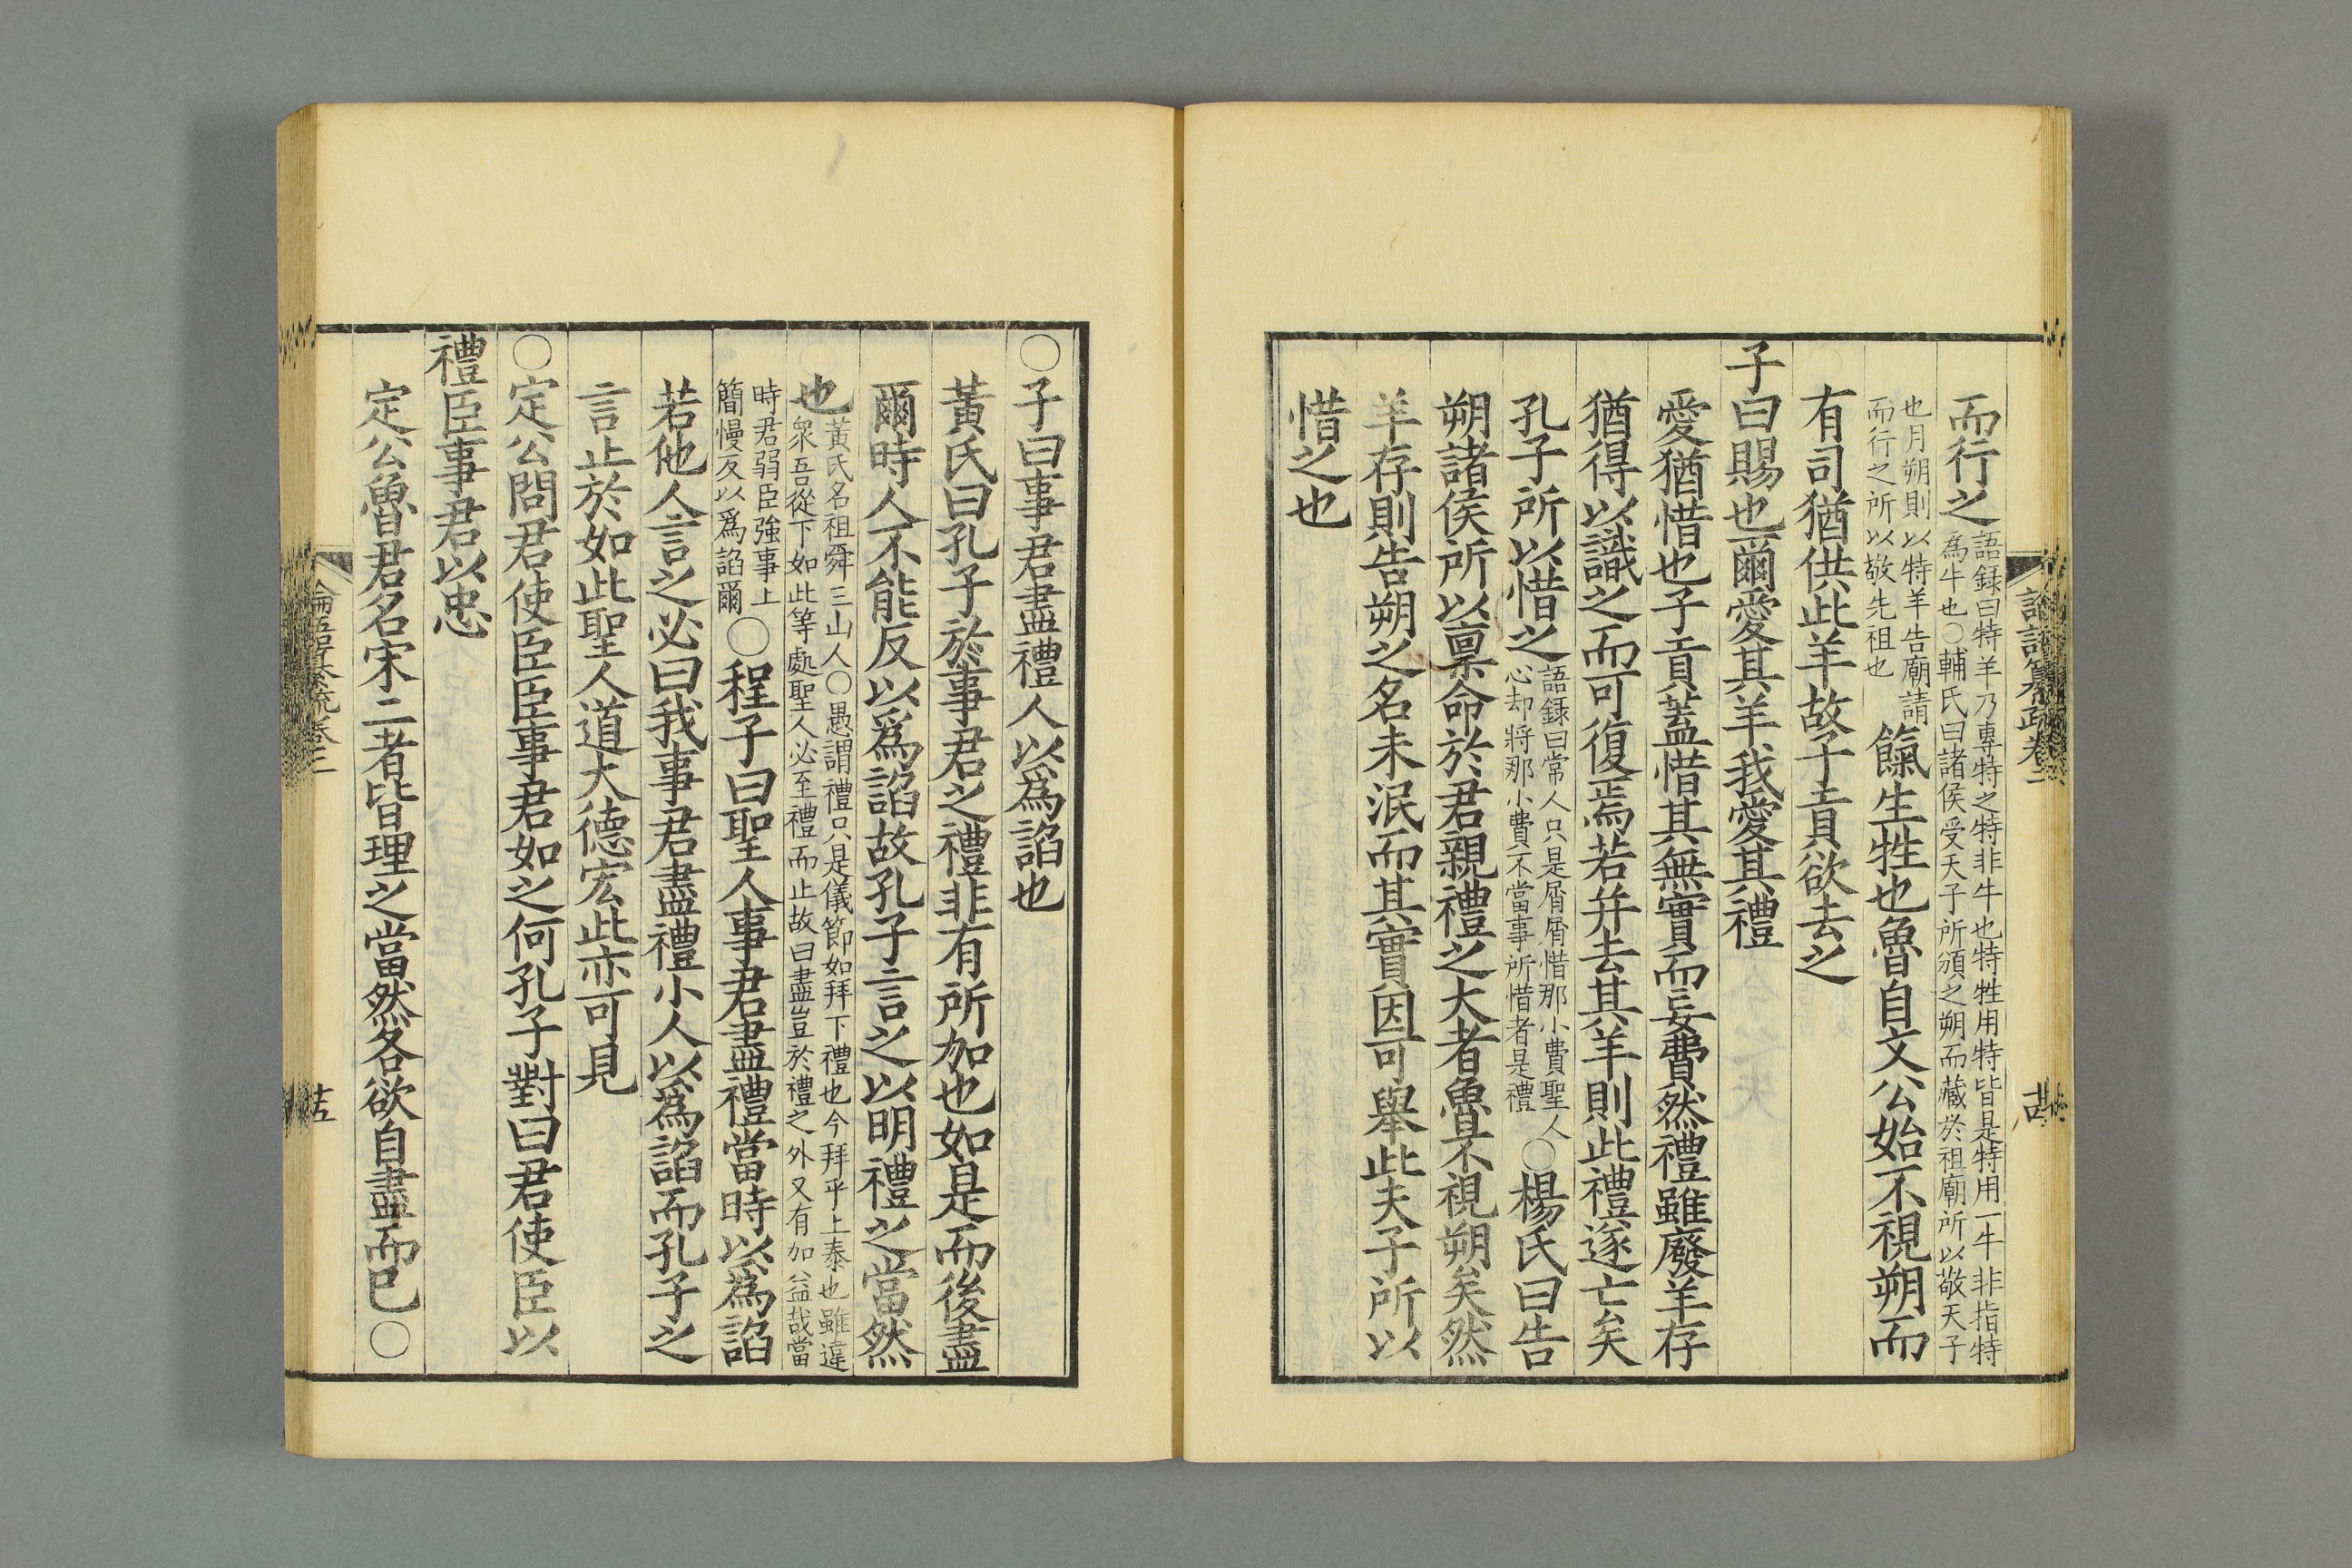 而行之語録曰特羊乃專特之特非牛也特牲用特皆是特用一牛非指特
為牛也○輔氏曰諸侯受天子所頒之朔而藏於祖廟所以敬天子
也月朔則以特羊告廟請
而行之所以敬先祖也
餼生牲也魯自文公始不視朔而
有司猶供此羊故子貢欲去之
子曰賜也爾愛其羊我愛其禮
愛猶惜也子貢蓋惜其無實而妄費然禮雖廢羊存
猶得以識之而可復焉若并去其羊則此禮遂亡矣
孔子所以惜之語録曰常人只是屑屑惜那小費聖人
心却將那小費不當事所惜者是禮
○楊氏曰告
朔諸侯所以稟命於君親禮之大者魯不視朔矣然
羊存則告朔之名未泯而其實因可舉此夫子所以
惜之也
○子曰事君盡禮人以為諂也
黃氏曰孔子於事君之禮非有所加也如是而後盡
爾時人不能反以爲諂故孔子言之以明禮之當然
也黃氏名祖舜三山人○愚謂禮只是儀節如拜下禮也今拜乎上泰也雖違
衆吾從下如此等處聖人必至禮而止故曰盡豈於禮之外又有加益哉當
時君弱臣強事上
簡慢反以爲諂爾
○程子曰聖人事君盡禮當時以為諂
若他人言之必曰我事君盡禮小人以爲諂而孔子之
言止於如此聖人道大德宏此亦可見
○定公問君使臣臣事君如之何孔子對曰君使臣以
禮臣事君以忠
定公魯君名宋二者皆理之當然各欲自盡而已○